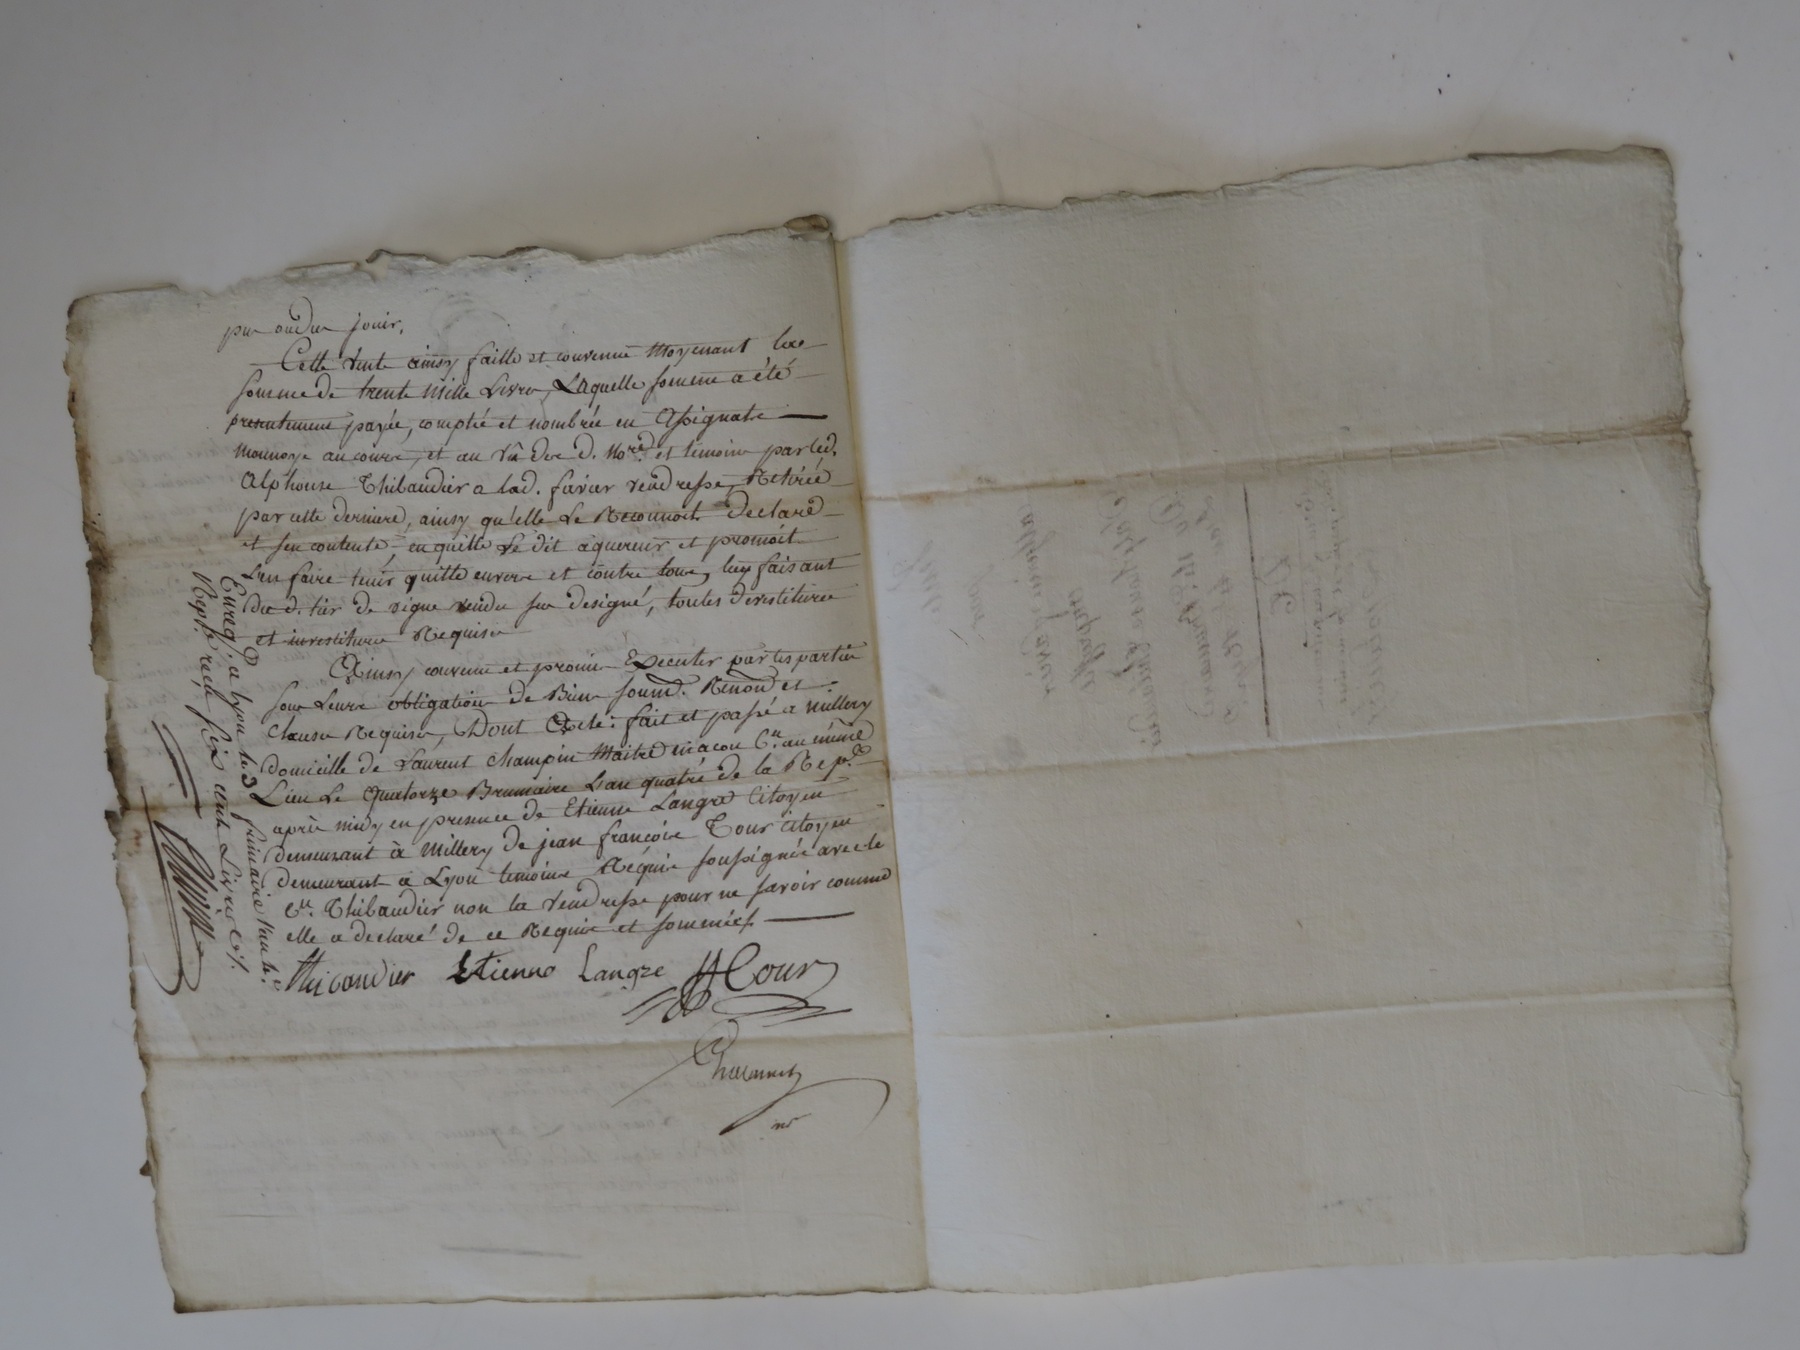 par ou du jouir.
Cette vente ainsy faitte et convenue Moyenant la
somme de trente Mille Livres, Laquelle somme a été
presentement payée, comptée et nombrée en Assignats
Monnoye au cours, et au Vû des d. No.re et temoins par led.
Alphonse Thibaudier a lad. favier vendresse, Retirée
par cette derniere, ainsy qu'elle Le Reconnoit Declare
et s'en contente, en quitte Le dit aquereur et promet
L'en faire tenir quitte envers et contre tous, luy faisant
du d. tier de vigne vendu sus designé, toutes devestitures
et investitures Requises
Ainsy convenu et promis Executer par les parties
sous Leurs obligations de Biens soum.d Renond et
Clauses Requises, Dont Acte: fait et passé a Millery
Domicille de Laurent Champin Maitre macon C.n au même
Lieu Le Quatorze Brumaire L'an quatre de la Rep.e
après midy en presence de Etienne Langre Citoyen
demeurant à Millery de jean françois Cour citoyen
demeurant a Lyon temoins Requis soussignés avec le
C.n Thibaudier non la vendresse pour ne savoir comme
elle a declaré de ce Requise et sommée
Thibaudier Etienne Langre Cour
Enreg. a lyon le 3 frimaire l'an 4.e
Rep. reçu six cent Livres